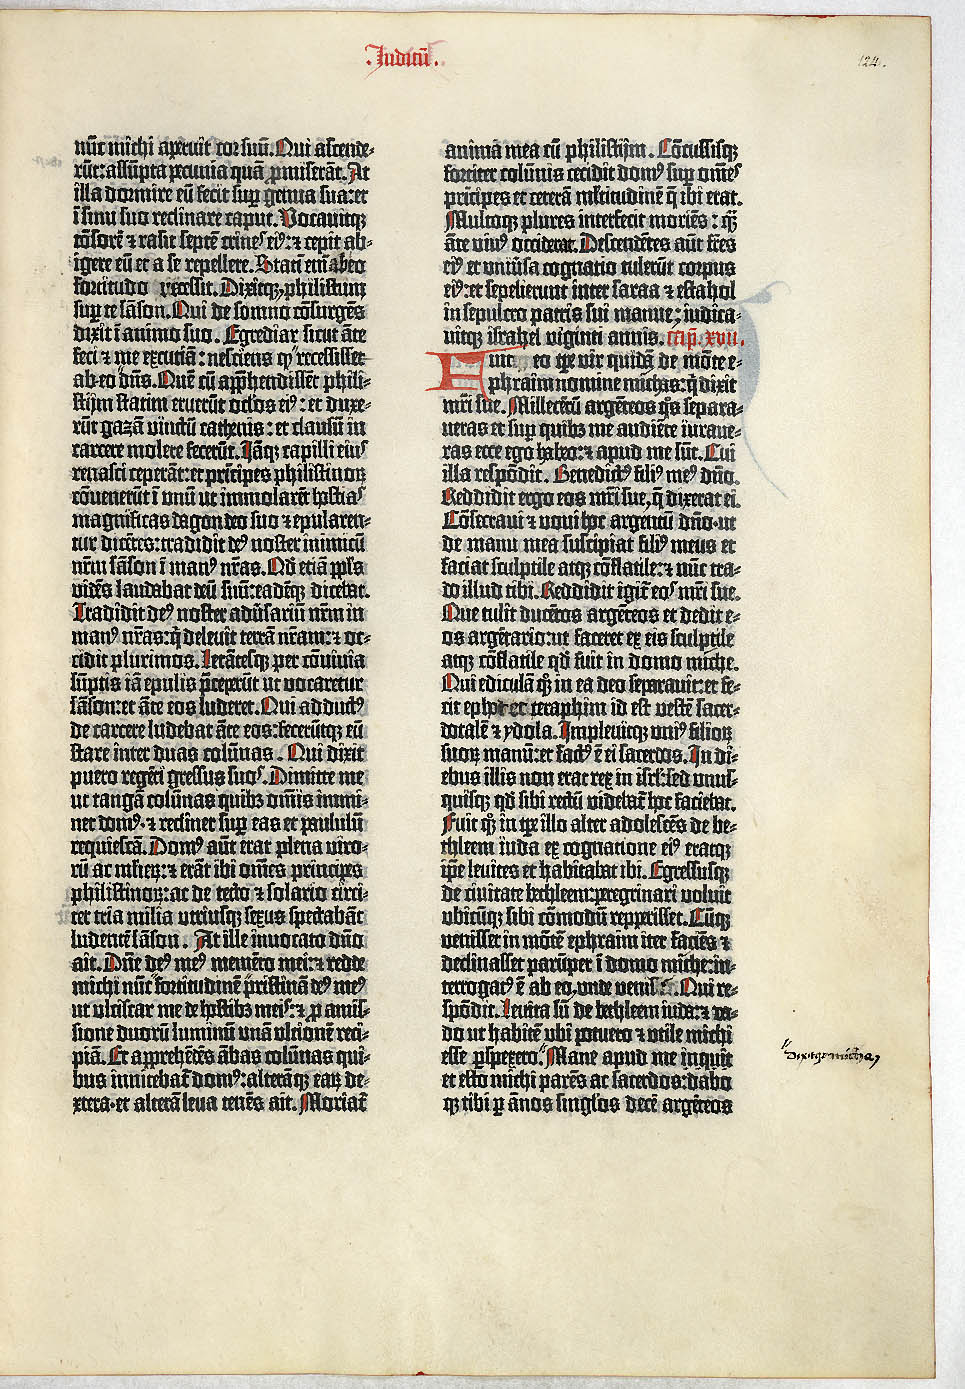 .Judicū.
124.
nūc michi aperuit cor suū. Qui ascende-
rūt: assūpta pecunia quā ꝓmiserāt. At
illa dormire eū fecit suꝑ genua sua: et
ī sinu suo reclinare caput. Vocauitqꝫ
tōsorē ⁊ rasit septē crines eiꝰ: ⁊ cepit ab-
igere eū et a se repellere. Statī em̄ ab eo
fortitudo recessit. Dixitqꝫ philistiim
suꝑ te sāson. Qui de somno cōsurgēs
dixit ī animo suo. Egrediar sicut āte
feci ⁊ me excutiā: nesciens qꝙ recessisset
ab eo dn̄s. Quē cū app̄hendissēt phili-
stijm statim eruerūt oclōs eiꝰ: et duxe-
rūt gazā vinctū cathenis: et clausū in
carcere molere fecerūt. Jāqꝫ capilli eiuꝰ
renasci ceperāt: et prīcipes philistinoꝝ
cōuenerūt ī vnū ut immolarēt hostias
magnificas dagon deo suo ⁊ epularen-
tur dicētes: tradidit deꝰ noster inimicū
nrm̄ sāson ī manꝰ nr̄as. Qd̄ etiā ppl̄s
vidēs laudabat deū suū: eadēqꝫ dicebat.
Tradidit deꝰ noster adūsariū nrm̄ in
manꝰ nr̄as: q̄ deleuit terrā nr̄am: ⁊ oc-
cidit plurimos. Letātesqꝫ per cōuiuia
sūptis iā epulis p̄ceperūt ut vocaretur
sāson: et āte eos luderet. Qui adductꝰ
de carcere ludebat āte eos: fecerūtqꝫ eū
stare inter duas colūnas. Qui dixit
puero regēti gressus suos. Dimitte me
ut tangā colūnas quibꝫ om̄is immi-
net domꝰ. ⁊ reclinet suꝑ eas et paululū
requiescā. Domꝰ aūt erat plena viro-
rū ac mlieꝝ: ⁊ erāt ibi om̄es principes
philistinoꝝ: ac de tecto ⁊ solario circi-
ter tria milia utriusqꝫ sexus spectabāt
ludentē sāson. At ille inuocato dn̄o
ait. Dn̄e deꝰ meꝰ memēto mei: ⁊ redde
michi nūc fortitudinē pristinā deꝰ meꝰ
ut ulciscar me de hostibꝫ meis: ⁊ ꝓ amis-
sione duorū luminū unā ultionē reci-
piā. Et apprehēdēs ābas colūnas qui-
bus innitebat̄ domꝰ: alterāqꝫ eaꝝ de-
xtera. et alterā leua tenēs ait. Moriat̄
anima mea cū philistijm. Cōcussisqꝫ
fortiter colūnis cecidit domꝰ suꝑ om̄es
prīcipes et ceterā mltitudinē q̄ ibi erat.
Multoqꝫ plures interfecit moriēs: qꝫ̄
āte viuꝰ occiderat. Descendētes aūt fr̄es
eiꝰ et vniūsa cognatio tulerūt corpus
eiꝰ: et sepelierunt inter saraa ⁊ estahol
in sepulcro patris sui manue: iudica-
uitqꝫ israhel viginti annis. Cap̄. xvii.
Fuit eo tꝑe vir quidā de mōte e-
phraim nomine michas: q̄ dixit
mr̄i sue. Mille cētū argēteos qͦs separa-
ueras et suꝑ quibꝫ me audiēte iuraue-
ras ecce ego habeo: ⁊ apud me sūt. Cui
illa respōdit. Benedictꝰ filiꝰ meꝰ dn̄o.
Reddidit ergo eos mr̄i sue, q̄ dixerat ei.
Cōsecraui ⁊ voui hoc argentū dn̄o. ut
de manu mea suscipiat filiꝰ meus et
faciat sculptile atqꝫ cōflatile: ⁊ nūc tra-
do illud tibi. Reddidit igit̄ eos mr̄i sue.
Que tulit ducētos argēteos et dedit e-
os argētario: ut faceret ex eis sculptile
atqꝫ cōflatile qd̄ fuit in domo miche.
Qui ediculā qͦꝫ in ea deo separauit: et fe-
cit ephot et teraphim id est vestē sacer-
dotalē ⁊ ydola. Impleuitqꝫ vniꝰ filioꝝ
suoꝝ manū: et factꝰ ē ei sacerdos. In di-
ebus illis non erat rex in isrl̄: sed vnus-
quisqꝫ qd̄ sibi rectū videbat̄ hoc faciebat.
Fuit qͦꝫ in tꝑe illo alter adolescēs de be-
thleem iuda ex cognatione eiꝰ eratqꝫ
ip̄e leuites et habitabat ibi. Egressusqꝫ
de ciuitate bethleem: peregrinari voluit
vbicūqꝫ sibi cōmodū repperisset. Cūqꝫ
venisset in mōtē ephraim iter faciēs ⁊
declinasset parūper ī domo miche: in-
terrogatꝰ ē ab eo vnde venis͛. Qui re-
spōdit. Leuita sū de bethleem iuda: ⁊ va-
do ut habitē vbi potuero ⁊ utile michi
esse ꝑspexero. Mane apud me inquit
et esto michi parēs ac sacerdos: dabo
qꝫ tibi ꝑ ānos singlōs decē argēteos
Dixitqꝫ micha